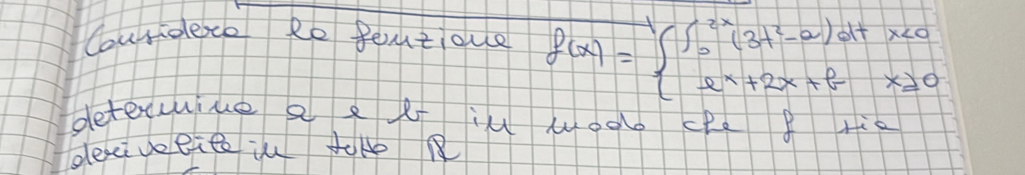 Considera la funzione f(x) = { ∫₀^2x (3t²-a)dt x<0
e^x+2x+b x≥0
determina a e b in modo che f sia
derivabile in tutto ℝ